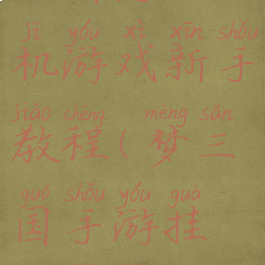 jī yóu xì xīn shǒu
机游戏新手
jiào chéng mèng sān
教程(梦三
guó shǒu yóu guà
国手游挂